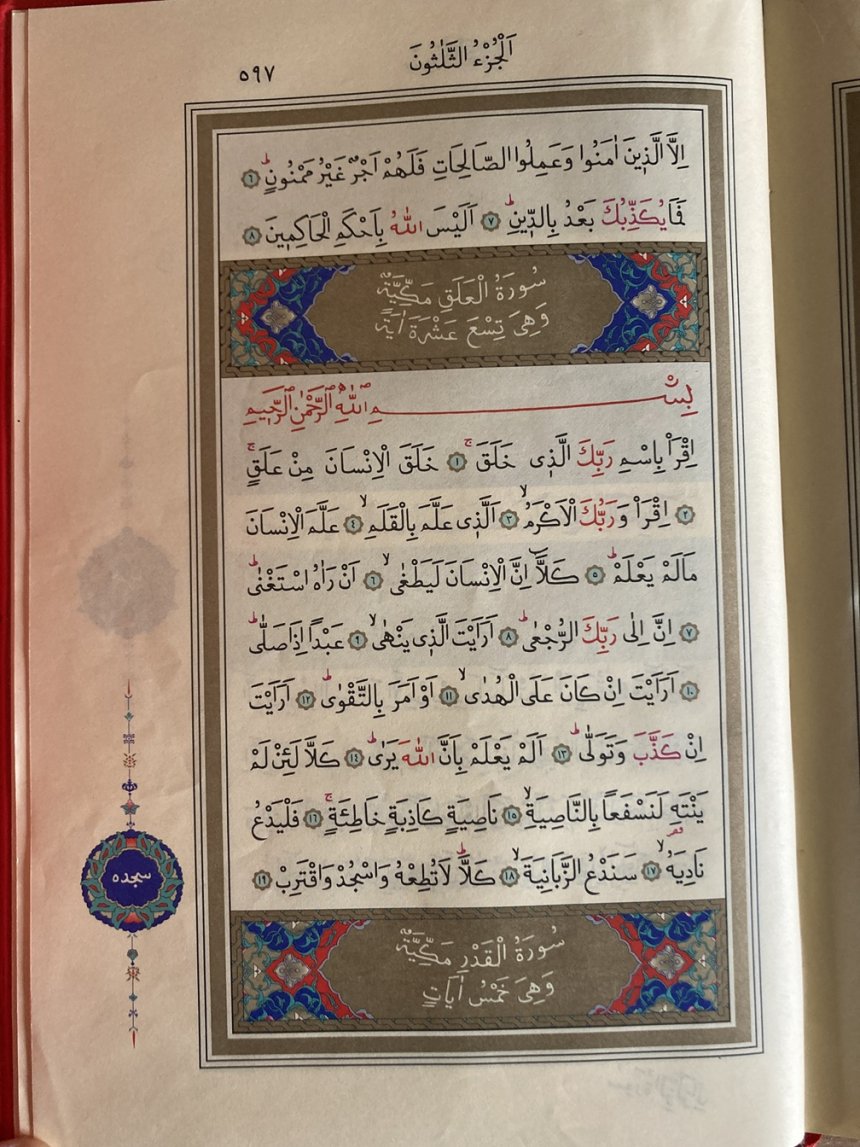 اَلْجُزْءُ الثَّلٰثُونَ
٥٩٧
اِلَّا الَّذ۪ينَ اٰمَنُوا وَعَمِلُوا الصَّالِحَاتِ فَلَهُمْ اَجْرٌ غَيْرُ مَمْنُونٍۜ ٦
فَمَا يُكَذِّبُكَ بَعْدُ بِالدّ۪ينِۜ ٧ اَلَيْسَ اللّٰهُ بِاَحْكَمِ الْحَاكِم۪ينَ ٨
سُورَةُ الْعَلَقِ مَكِّيَّةٌ
وَهِيَ تِسْعَ عَشْرَةَ اٰيَةً
بِسْمِ اللّٰهِ الرَّحْمٰنِ الرَّح۪يمِ
اِقْرَأْ بِاسْمِ رَبِّكَ الَّذ۪ي خَلَقَۚ ١ خَلَقَ الْاِنْسَانَ مِنْ عَلَقٍۚ
٢ اِقْرَأْ وَرَبُّكَ الْاَكْرَمُۙ ٣ اَلَّذ۪ي عَلَّمَ بِالْقَلَمِۙ ٤ عَلَّمَ الْاِنْسَانَ
مَا لَمْ يَعْلَمْۜ ٥ كَلَّٓا اِنَّ الْاِنْسَانَ لَيَطْغٰىۙ ٦ اَنْ رَاٰهُ اسْتَغْنٰىۜ
٧ اِنَّ اِلٰى رَبِّكَ الرُّجْعٰىۜ ٨ اَرَاَيْتَ الَّذ۪ي يَنْهٰىۙ ٩ عَبْدًا اِذَا صَلّٰىۜ
١٠ اَرَاَيْتَ اِنْ كَانَ عَلَى الْهُدٰىۙ ١١ اَوْ اَمَرَ بِالتَّقْوٰىۜ ١٢ اَرَاَيْتَ
اِنْ كَذَّبَ وَتَوَلّٰىۜ ١٣ اَلَمْ يَعْلَمْ بِاَنَّ اللّٰهَ يَرٰىۜ ١٤ كَلَّا لَئِنْ لَمْ
يَنْتَهِ لَنَسْفَعًا بِالنَّاصِيَةِۙ ١٥ نَاصِيَةٍ كَاذِبَةٍ خَاطِئَةٍۚ ١٦ فَلْيَدْعُ
نَادِيَهُۙ ١٧ سَنَدْعُ الزَّبَانِيَةَۙ ١٨ كَلَّاۜ لَا تُطِعْهُ وَاسْجُدْ وَاقْتَرِبْ ١٩
سجده
سُورَةُ الْقَدْرِ مَكِّيَّةٌ
وَهِيَ خَمْسُ اٰيَاتٍ